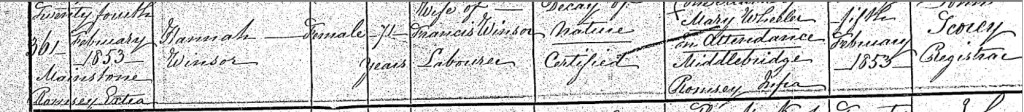 Twenty fourth
361 February
1853
Mainstone
Romsey Extra
Hannah
Winsor
Female
71
years
Wife of
Francis Winsor
Labourer
Decay of
Nature
Certified
Mary Wheeler
in Attendance
Middlebridge
Romsey Infra
fifth
February
1853
Registrar